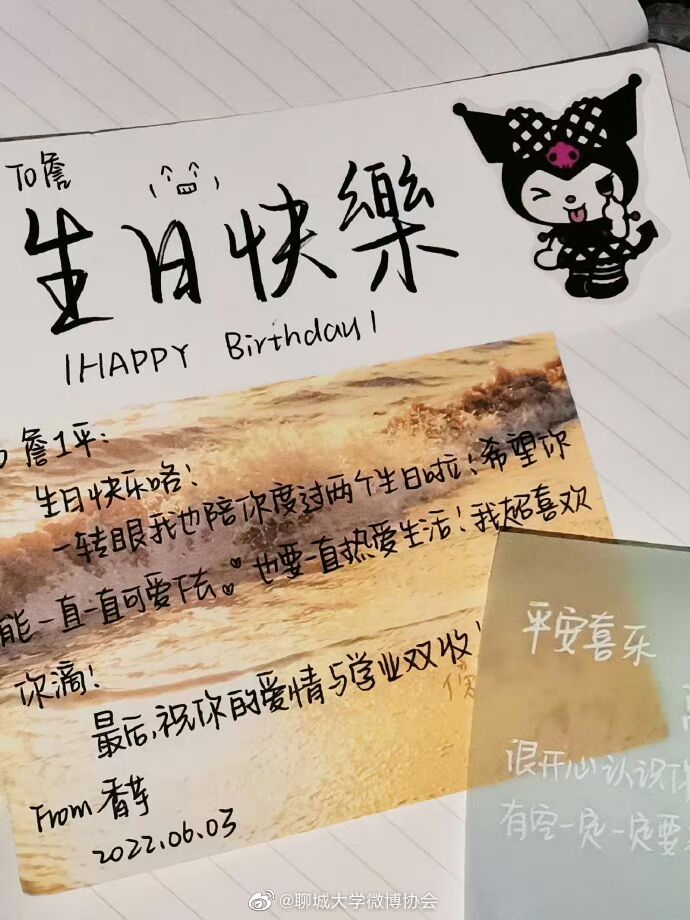 To 詹
生日快樂
HAPPY Birthday
詹1平:
生日快乐咯!
一转眼我也陪你度过两个生日啦!希望你
能一直一直可爱下去。也要一直热爱生活!我超喜欢
你滴!
最后,祝你的爱情与学业双收!
From 香芋
2022.06.03
平安喜乐
很开心认识
有空一定一定要
@聊城大学微博协会